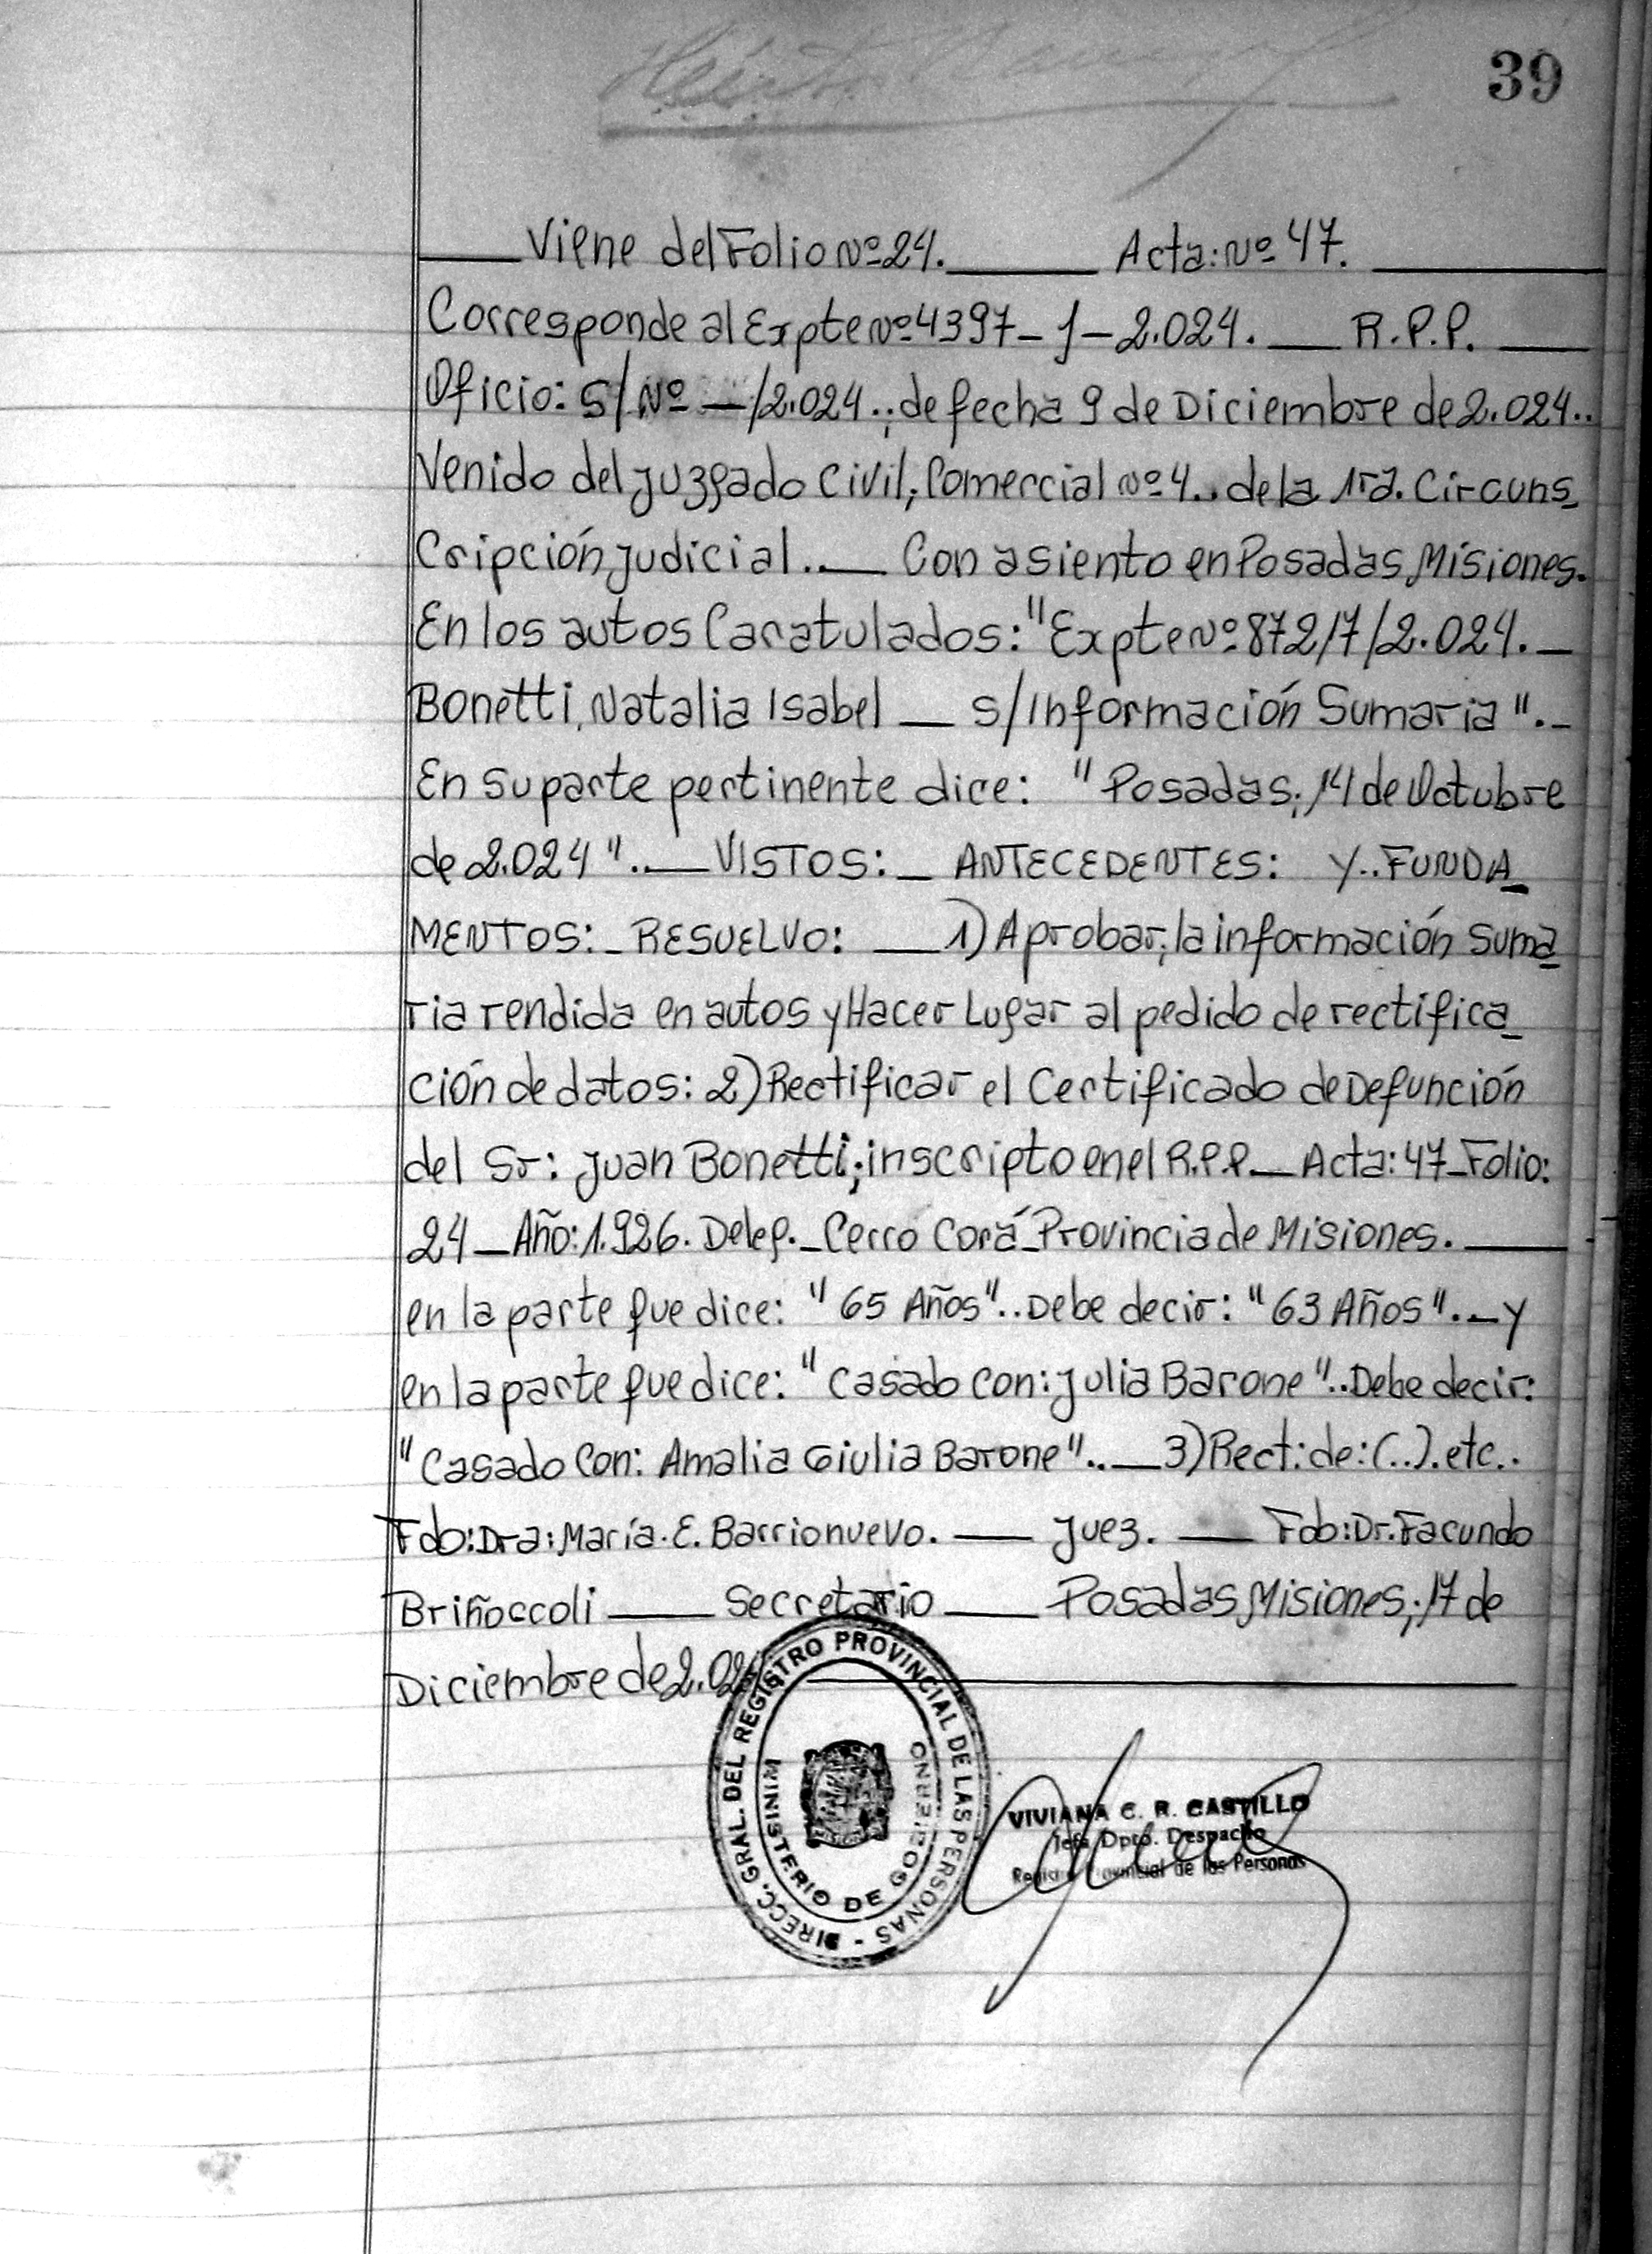 39
Viene del Folio Nº 24. Acta: Nº 47.
Corresponde al Expte Nº 4397 - J - 2.024. R.P.P.
Oficio: S/Nº —/2.024.; de fecha 9 de Diciembre de 2.024..
Venido del Juzgado Civil; Comercial Nº 4.. de la 1ra. Circuns
Cripción Judicial.. Con asiento en Posadas Misiones.
En los autos Caratulados: "Expte Nº 87217/2.024.
Bonetti, Natalia Isabel — s/Información Sumaria".
En su parte pertinente dice: "Posadas; 14 de Octubre
de 2.024". VISTOS: ANTECEDENTES: Y.. FUNDA
MENTOS: RESUELVO: 1) Aprobar; la información suma
ria rendida en autos y Hacer Lugar al pedido de rectifica
ción de datos: 2) Rectificar el Certificado de Defunción
del Sr: Juan Bonetti; inscripto en el R.P.P. Acta: 47 Folio:
24 Año: 1.926. Deleg. Cerro Corá Provincia de Misiones.
en la parte que dice: "65 Años".. Debe decir: "63 Años". y
en la parte que dice: "Casado Con: Julia Barone".. Debe decir:
"Casado Con: Amalia Giulia Barone".. 3) Rect: de: (..). etc..
Fdo: Dra: María. E. Barrionuevo. Juez. Fdo: Dr. Facundo
Briñoccoli Secretario Posadas Misiones; 17 de
Diciembre de 2.024
DIRECC. GRAL. DEL REGISTRO PROVINCIAL DE LAS PERSONAS -
MINISTERIO DE GOBIERNO
VIVIANA C. R. CASTILLO
Jefa Dpto. Despacho
Registro Provincial de las Personas